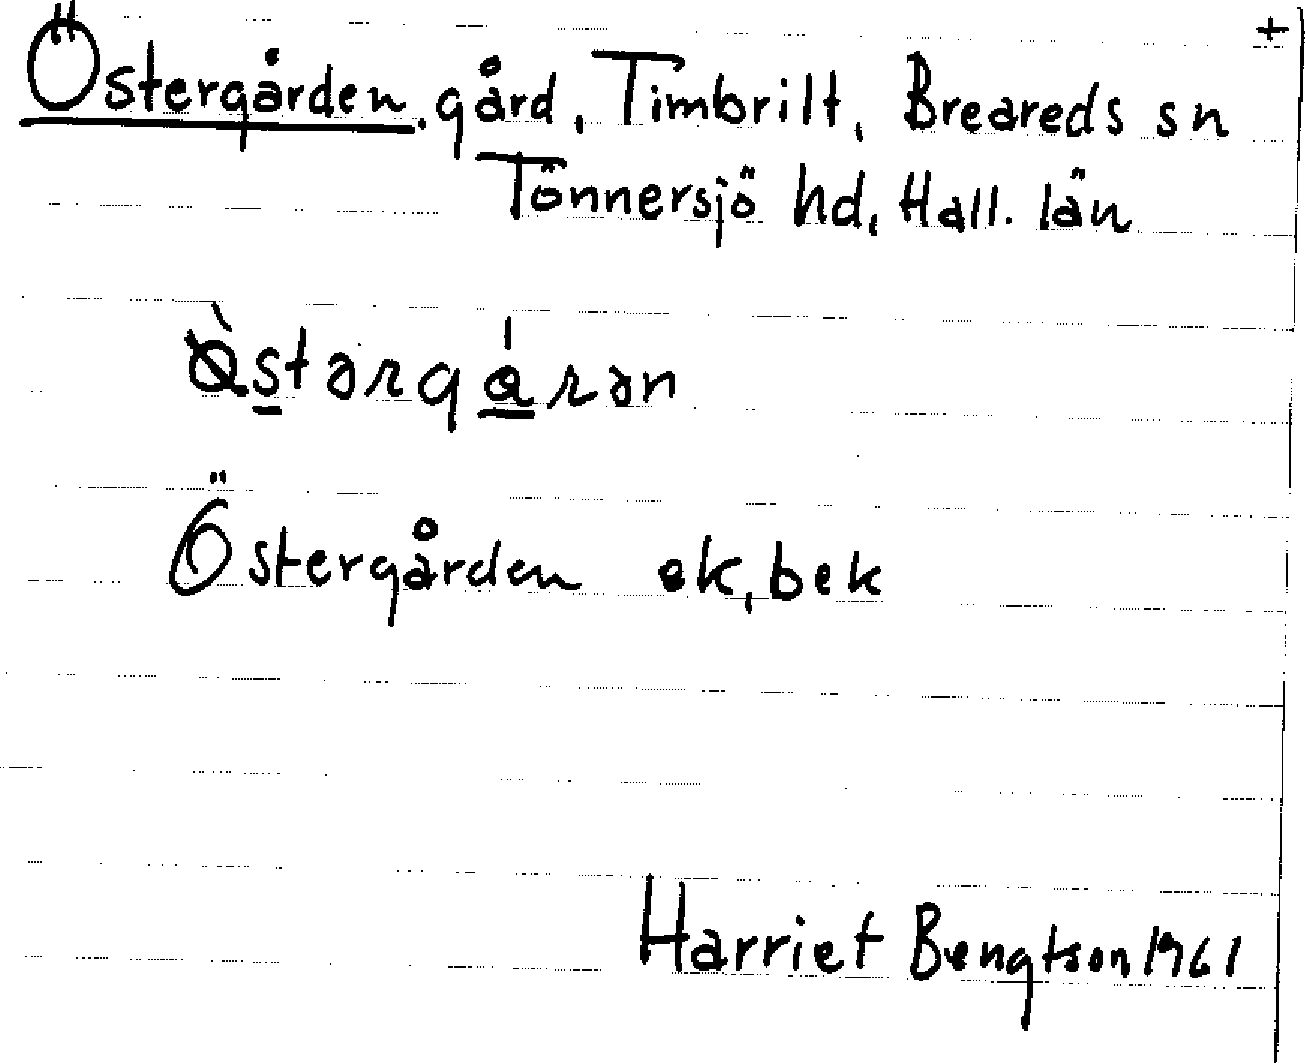 +
Östergården. gård, Timbrilt, Breareds sn
Tönnersjö hd, Hall. län
Östergården ek, bek
Harriet Bengtson 1961